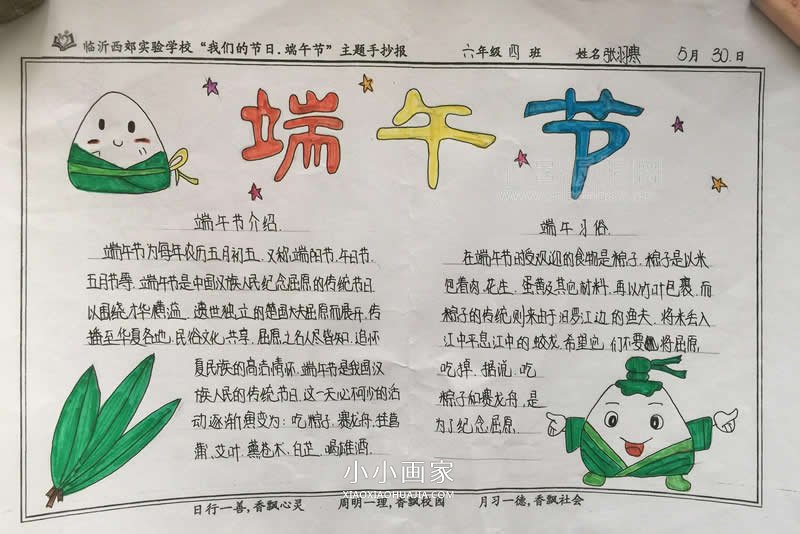 临沂西郊实验学校“我们的节日.端午节”主题手抄报 六年级 四 班 姓名 张羽寒 5月 30.日
端午节
端午节介绍.
端午节为每年农历五月初五.又称端阳节.午日节.
五月节等.端午节是中国汉族人民纪念屈原的传统节日.
以围绕才华横溢.遗世独立的楚国大夫屈原而展开.传
播至华夏各地.民俗文化共享.屈原之名人尽皆知.追怀
夏民族的高洁情怀.端午节是我国汉
族人民的传统节日.这一天必不可少的活
动逐渐演变为:吃粽子.赛龙舟.挂菖
蒲.艾叶.薰苍术.白芷.喝雄酒.
端午习俗.
在端午节的受欢迎的食物是粽子.粽子是以米
包着肉.花生.蛋黄及其他材料.再以竹叶包裹.而
粽子的传统.则来由于汨罗江边的渔夫.将米丢入
江中平息江中的蛟龙.希望它们不要将屈原
吃掉.据说.吃
粽子和赛龙舟.是
为了纪念屈原.
小小画家
XIAOXIAOHUAJIA.COM
日行一善,香飘心灵 周明一理,香飘校园 月习一德,香飘社会